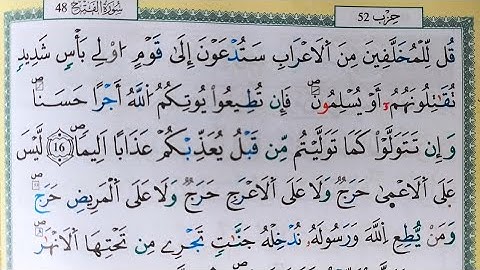 حِزْبُ 52
سُورَةُ الْفَتْحِ 48
قُل لِّلْمُخَلَّفِينَ مِنَ اَلَاعْرَابِ سَتُدْعَوْنَ إِلَىٰ قَوْمٍ اُوْلِے بَأْسٍ شَدِيدٍ
تُقَٰتِلُونَهُمُۥٓ أَوْ يُسْلِمُونَ فَإِن تُطِيعُوا۟ يُوتِكُمُ اُللَّهُ أَجْرًا حَسَنًا
وَإِن تَتَوَلَّوْا۟ كَمَا تَوَلَّيْتُم مِّن قَبْلُ يُعَذِّبْكُمْ عَذَابًا اَلِيمًا 16 لَّيْسَ
عَلَى اَلَاعْمَىٰ حَرَجٌ وَلَا عَلَى اَلَاعْرَجِ حَرَجٌ وَلَا عَلَى اَلْمَرِيضِ حَرَجٌ
وَمَنْ يُّطِعِ اِللَّهَ وَرَسُولَهُۥ نُدْخِلْهُ جَنَّٰتٍ تَجْرِے مِن تَحْتِهَا اَلَانْهَٰرُ